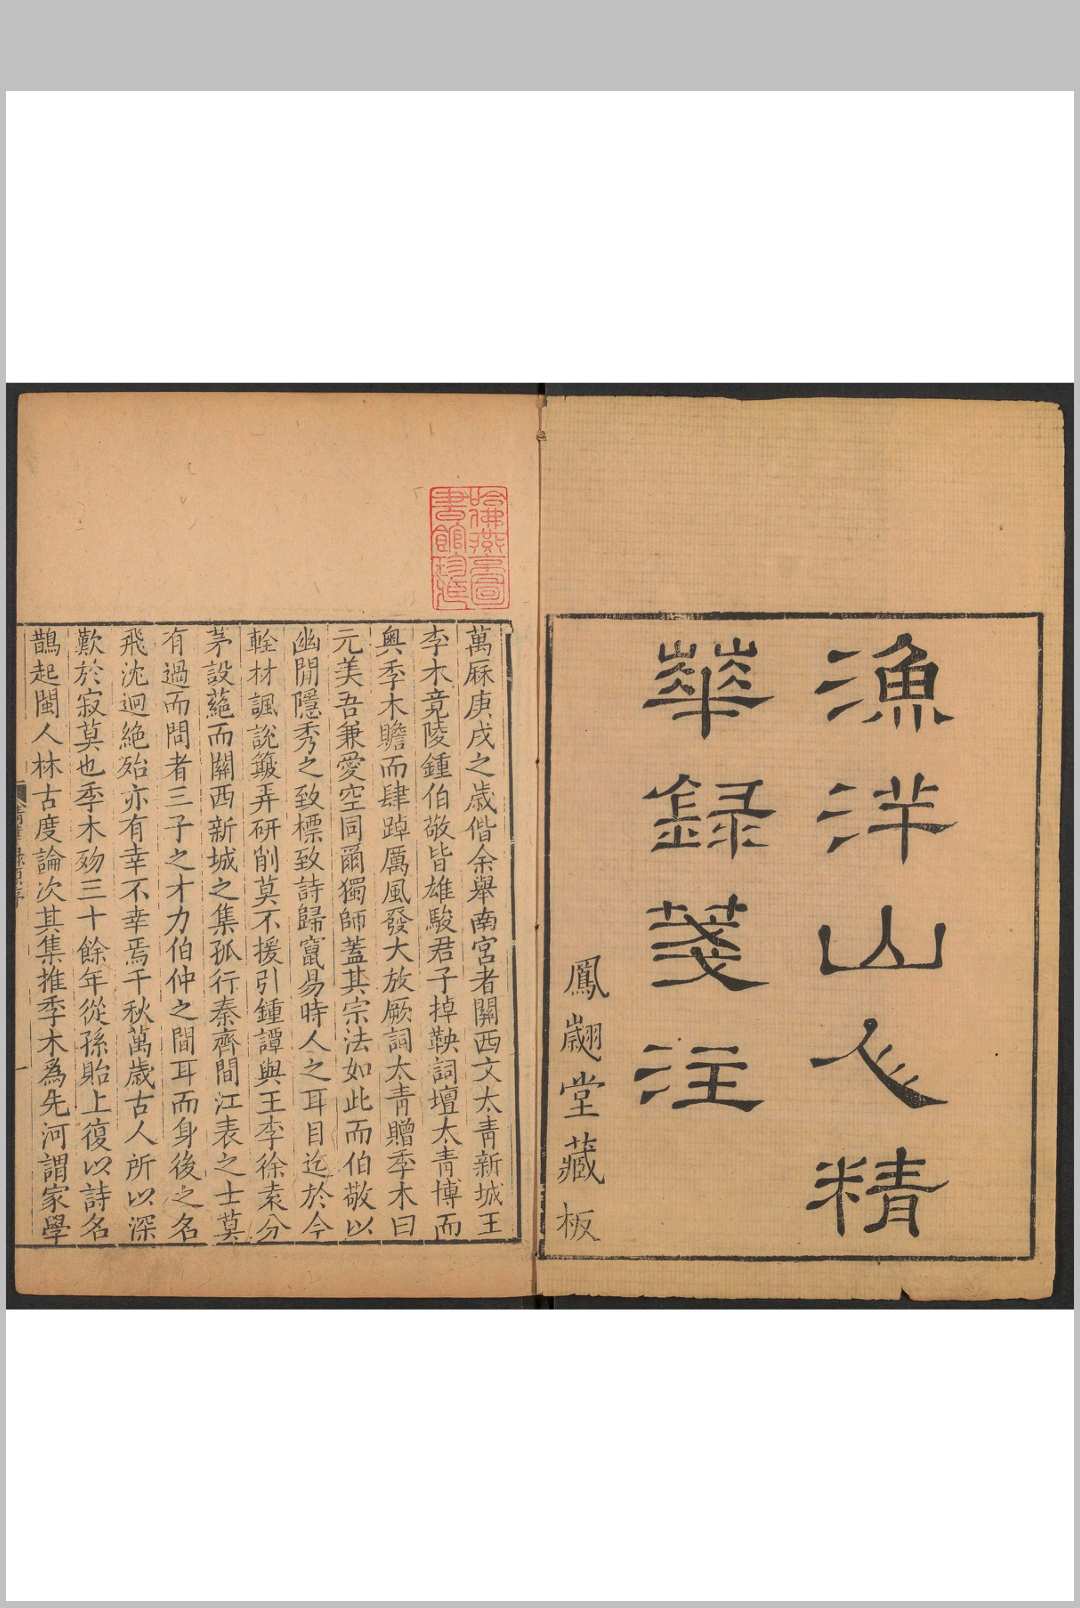 漁洋山人精
華録箋注
鳳翽堂藏板
哈佛燕京圖
書館珍藏
萬厤庚戌之歲偕余舉南宮者關西文太青新城王
季木竟陵鍾伯敬皆雄駿君子掉鞅詞壇太青博而
奥季木贍而肆踔厲風發大放厥詞太青贈季木曰
元美吾兼愛空同爾獨師蓋其宗法如此而伯敬以
幽閒隱秀之致標致詩歸竄易時人之耳目迄於今
輇材諷說簸弄研削莫不援引鍾譚與王李徐袁分
茅設蕝而關西新城之集孤行秦齊間江表之士莫
有過而問者三子之才力伯仲之間耳而身後之名
飛沈迥絶殆亦有幸不幸焉千秋萬歲古人所以深
歎於寂莫也季木殁三十餘年從孫貽上復以詩名
鵲起閩人林古度論次其集推季木為先河謂家學